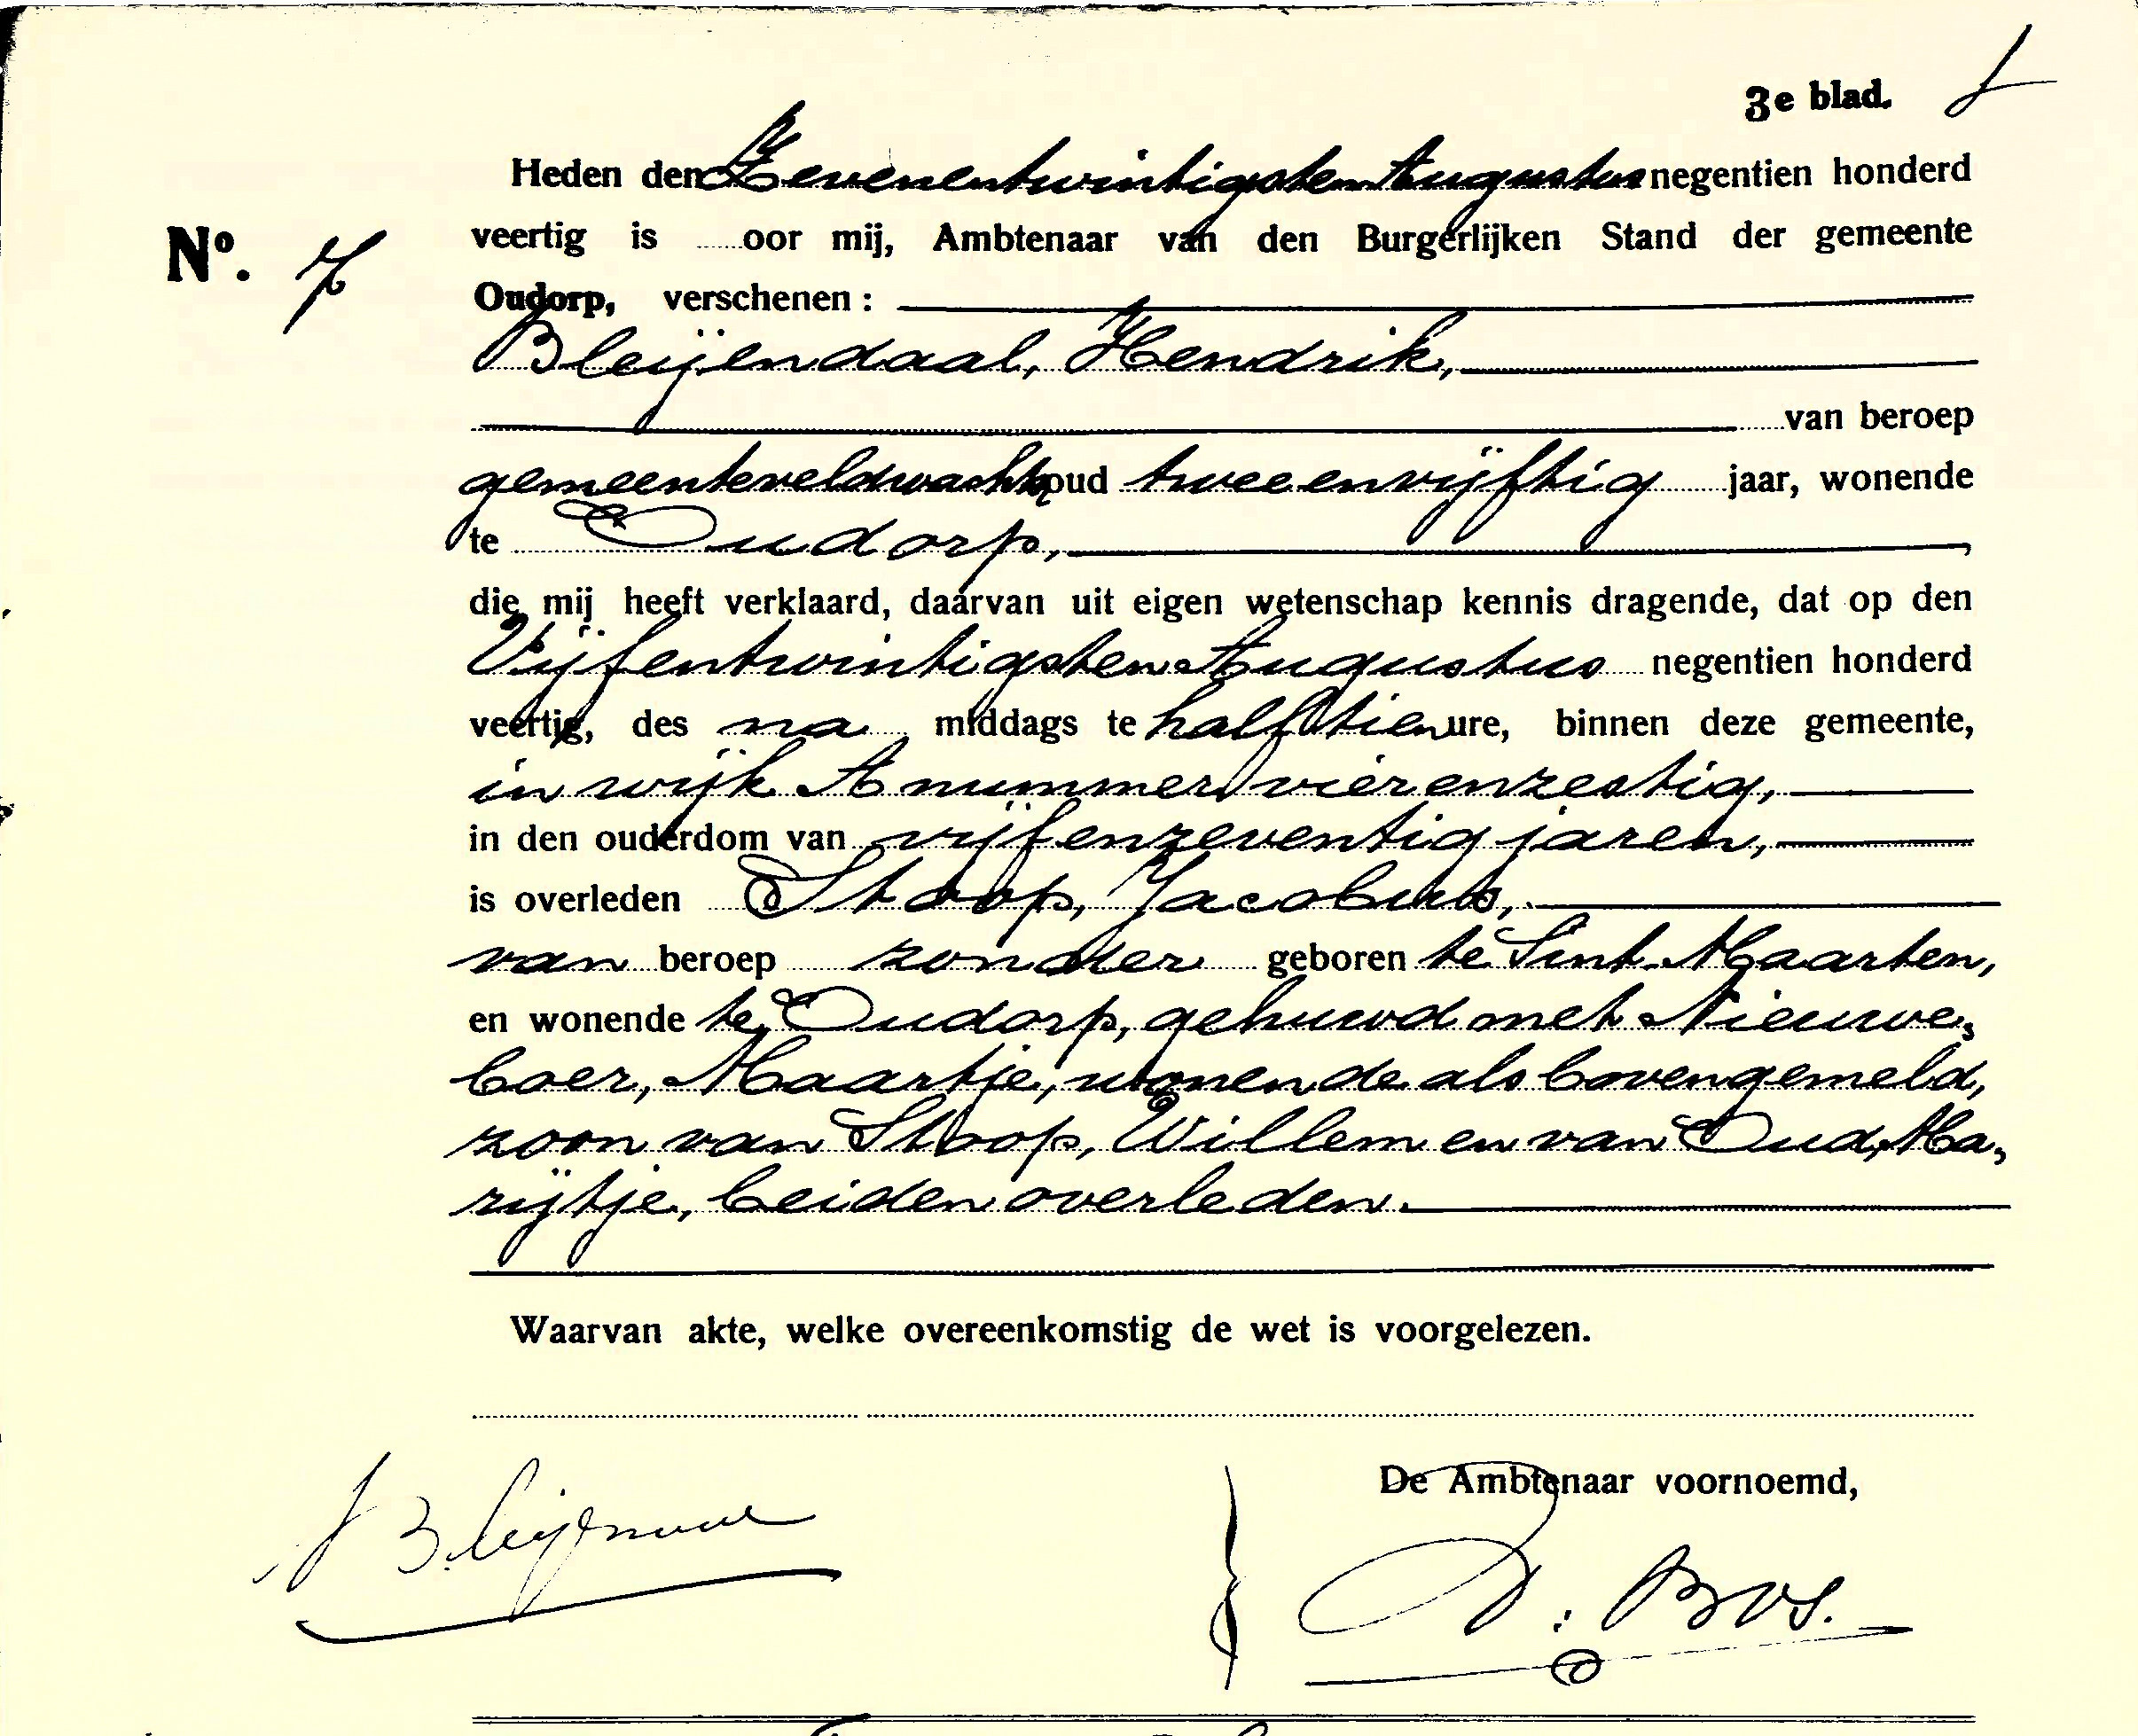 3e blad.
Heden den Zevenentwintigsten Augustus negentien honderd
No. 7
veertig is oor mij, Ambtenaar van den Burgerlijken Stand der gemeente
Oudorp, verschenen :
Bleijendaal, Hendrik,
van beroep
gemeenteveldwachter oud tweeenvijftig jaar, wonende
te Oudorp,
die mij heeft verklaard, daarvan uit eigen wetenschap kennis dragende, dat op den
Vijfentwintigsten Augustus negentien honderd
veertig, des na middags te half tien ure, binnen deze gemeente,
in wijk A nummer vierenzestig,
in den ouderdom van vijfenzeventig jaren,
is overleden Stoop, Jacobus,
van beroep zonder geboren te Sint-Maarten,
en wonende te Oudorp, gehuwd met Nieuwe,
boer, Maartje, wonende als bovengemeld,
zoon van Stoop, Willem en van Oud, Ma,
rijtje, beiden overleden.
Waarvan akte, welke overeenkomstig de wet is voorgelezen.
De Ambtenaar voornoemd,
D. Bos.